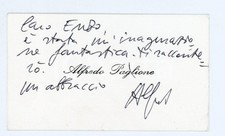 Caro Enzo
è stata un'inaugurazio
ne fantastica. Ti racconte
rò. Alfredo Paglione
un abbraccio
Alfredo